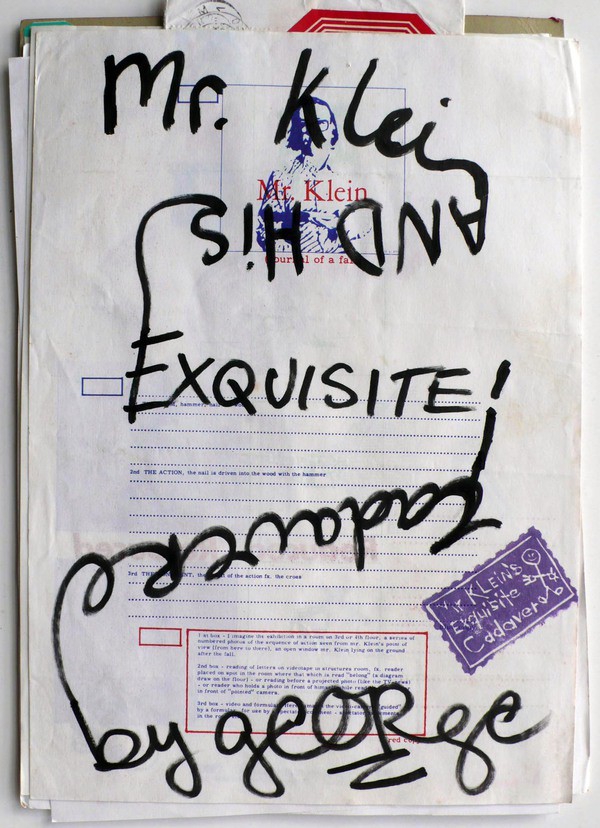 Mr. Klein
Mr. Klein
AND HiS
journal of a fall
EXQUISITE!
hammer, nail
2nd THE ACTION, the nail is driven into the wood with the hammer
cadavere
3rd THE of the action fx. the cross
Mr KLEiN'S
Exquisite
Cadavere
1st box - I imagine the exhibition in a room on 3rd or 4th floor, a series of
numbered photos of the sequence of action seen from mr. Klein's point of
view (from here to there), an open window mr. Klein lying on the ground
after the fall.
2nd box - reading of letters on videotape in structures room, fx. reader
placed on spot in the room where that which is read "belong" (a diagram
draw on the floor) - or reading before a projected photo (like the TV-news)
- or reader who holds a photo in front of himself while
in front of "pointed" camera.
3rd box - video and formula "guided"
by a formula, for use by special
in the
red copy
by geORge